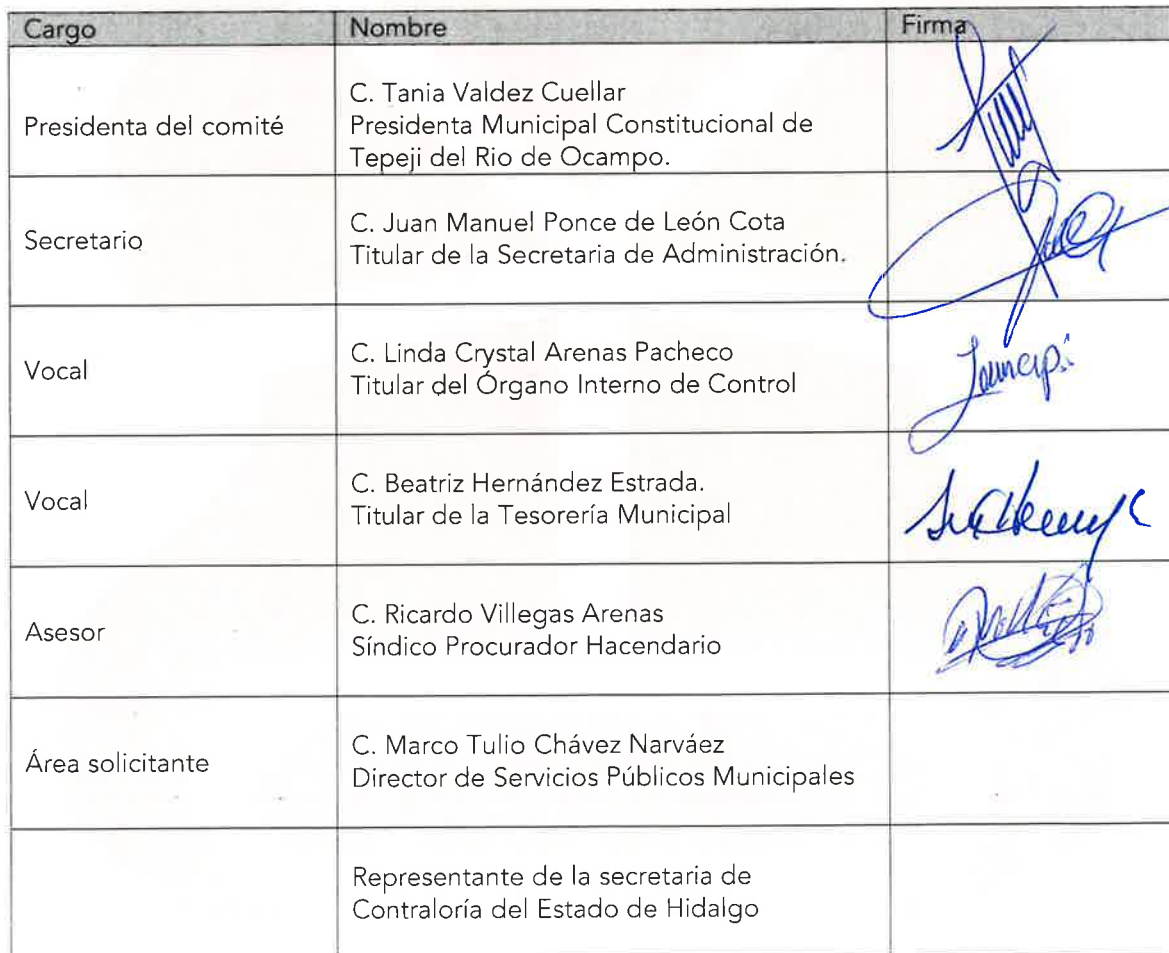 Cargo Nombre Firma
Presidenta del comité
C. Tania Valdez Cuellar
Presidenta Municipal Constitucional de
Tepeji del Rio de Ocampo.
Secretario
C. Juan Manuel Ponce de León Cota
Titular de la Secretaria de Administración.
Vocal
C. Linda Crystal Arenas Pacheco
Titular del Órgano Interno de Control
Vocal
C. Beatriz Hernández Estrada.
Titular de la Tesorería Municipal
Asesor
C. Ricardo Villegas Arenas
Síndico Procurador Hacendario
Área solicitante
C. Marco Tulio Chávez Narváez
Director de Servicios Públicos Municipales
Representante de la secretaria de
Contraloría del Estado de Hidalgo